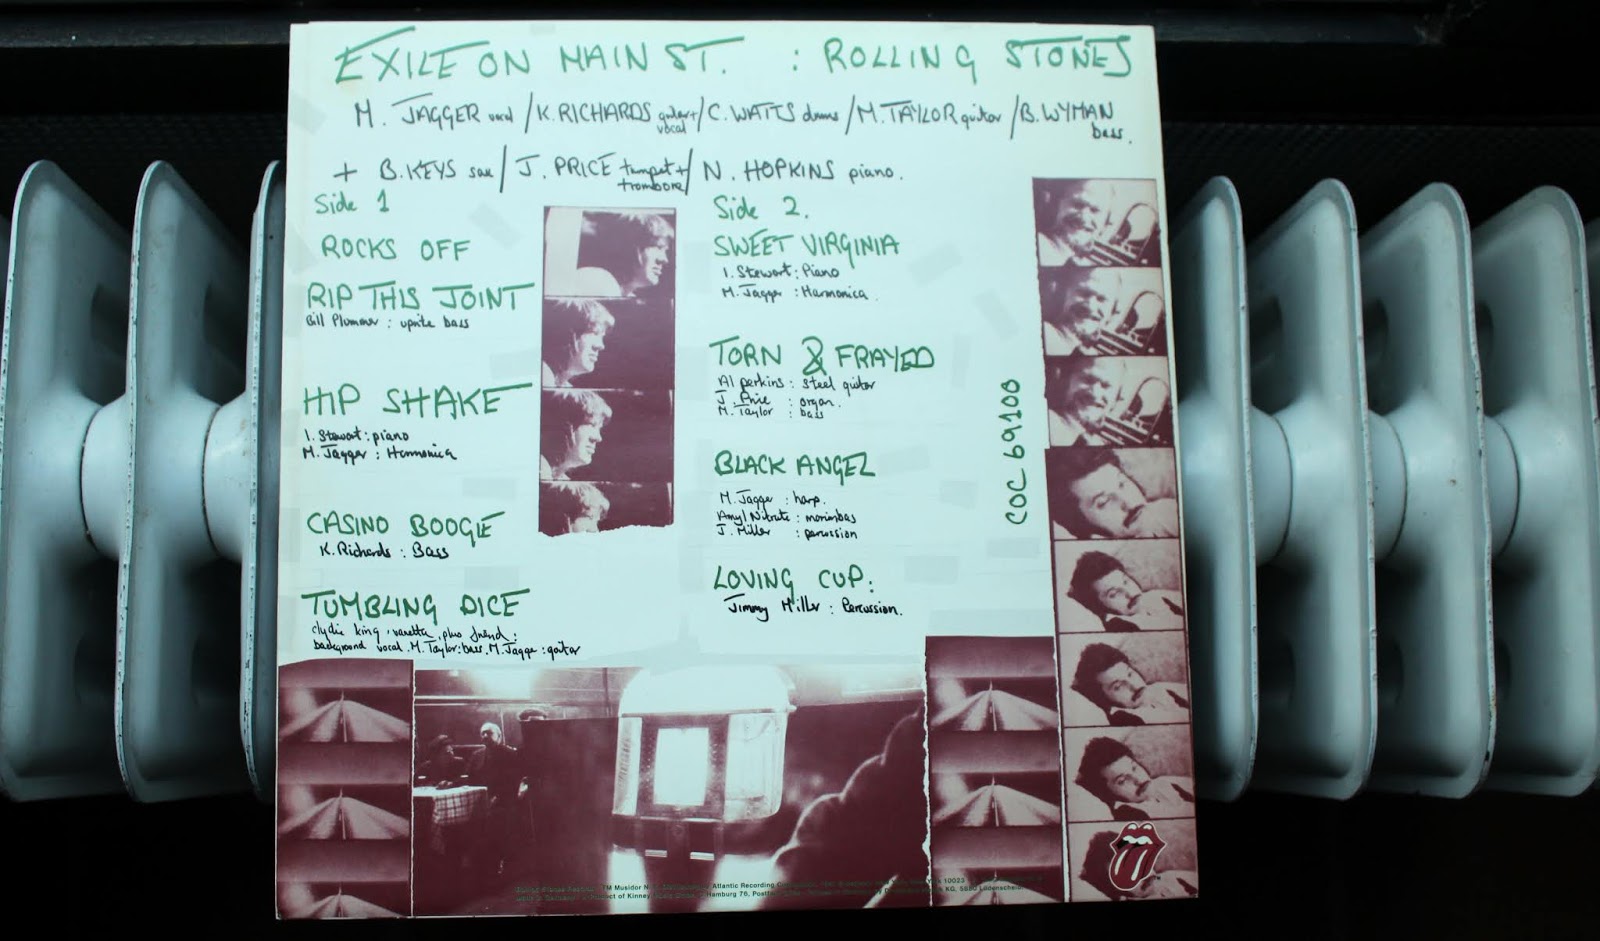 EXILE ON MAIN ST. : ROLLING STONES
M. JAGGER vocal / K. RICHARDS guitar + vocal / C. WATTS drums / M. TAYLOR guitar / B. WYMAN bass.
+ B. KEYS sax / J. PRICE trumpet + trombone / N. HOPKINS piano.
Side 1
ROCKS OFF
RIP THIS JOINT
Bill Plummer : uprite bass
HIP SHAKE
I. Stewart : piano
M. Jagger : Harmonica
CASINO BOOGIE
K. Richards : Bass
TUMBLING DICE
clydie king, vanetta, plus friend :
background vocal. M. Taylor : bass. M. Jagger : guitar
Side 2.
SWEET VIRGINIA
I. Stewart : Piano
M. Jagger : Harmonica.
TORN & FRAYED
Al perkins : steel guitar
J. Price : organ.
M. Taylor : bass
BLACK ANGEL
M. Jagger : harp.
Amyl Nitrate : marimbas
J. Miller : percussion
LOVING CUP :
Jimmy Miller : Percussion.
COC 69100
TM Musidor N. Atlantic Recording 10023
Product of Kinney Hamburg 76, KG, 5880 Lüdenscheid